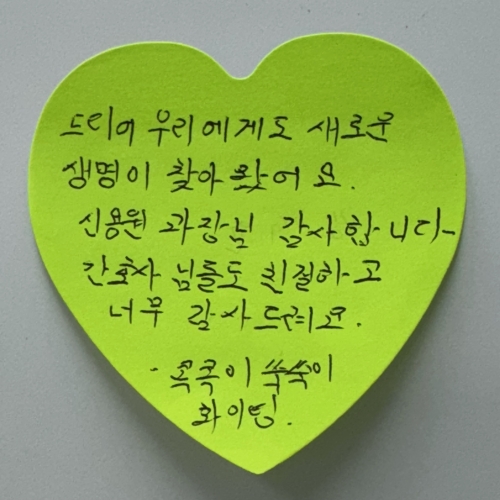 드디어 우리에게도 새로운
생명이 찾아 왔어요.
신용원 과장님 감사합니다
간호사 님들도 친절하고
너무 감사드려요.
- 콕콕이 쑥쑥이
화이팅.